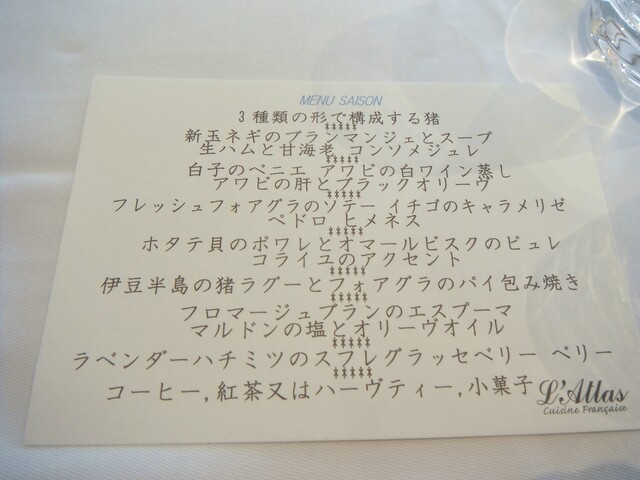 MENU SAISON
3種類の形で構成する猪
*****
新玉ネギのブランマンジェとスープ
生ハムと甘海老 コンソメジュレ
*****
白子のベニエ アワビの白ワイン蒸し
アワビの肝とブラックオリーヴ
*****
フレッシュフォアグラのソテー イチゴのキャラメリゼ
ペドロ ヒメネス
*****
ホタテ貝のポワレとオマールビスクのピュレ
コライユのアクセント
*****
伊豆半島の猪ラグーとフォアグラのパイ包み焼き
*****
フロマージュブランのエスプーマ
マルドンの塩とオリーヴオイル
*****
ラベンダーハチミツのスフレグラッセベリー ベリー
*****
コーヒー,紅茶又はハーヴティー,小菓子
L'Atlas
Cuisine Française